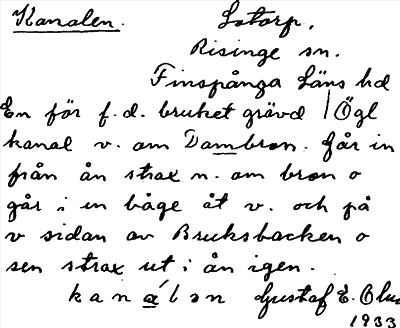 Kanalen. Lotorp.
Risinge sn.
Finspånga Läns hd
En för f.d. bruket grävd | Ögl
kanal v. om Dambron. Går in
från ån strax n. om bron o
går i en båge åt v. och på
v sidan av Bruksbacken o
sen strax ut i ån igen.
kanálən Gustaf E.
1933